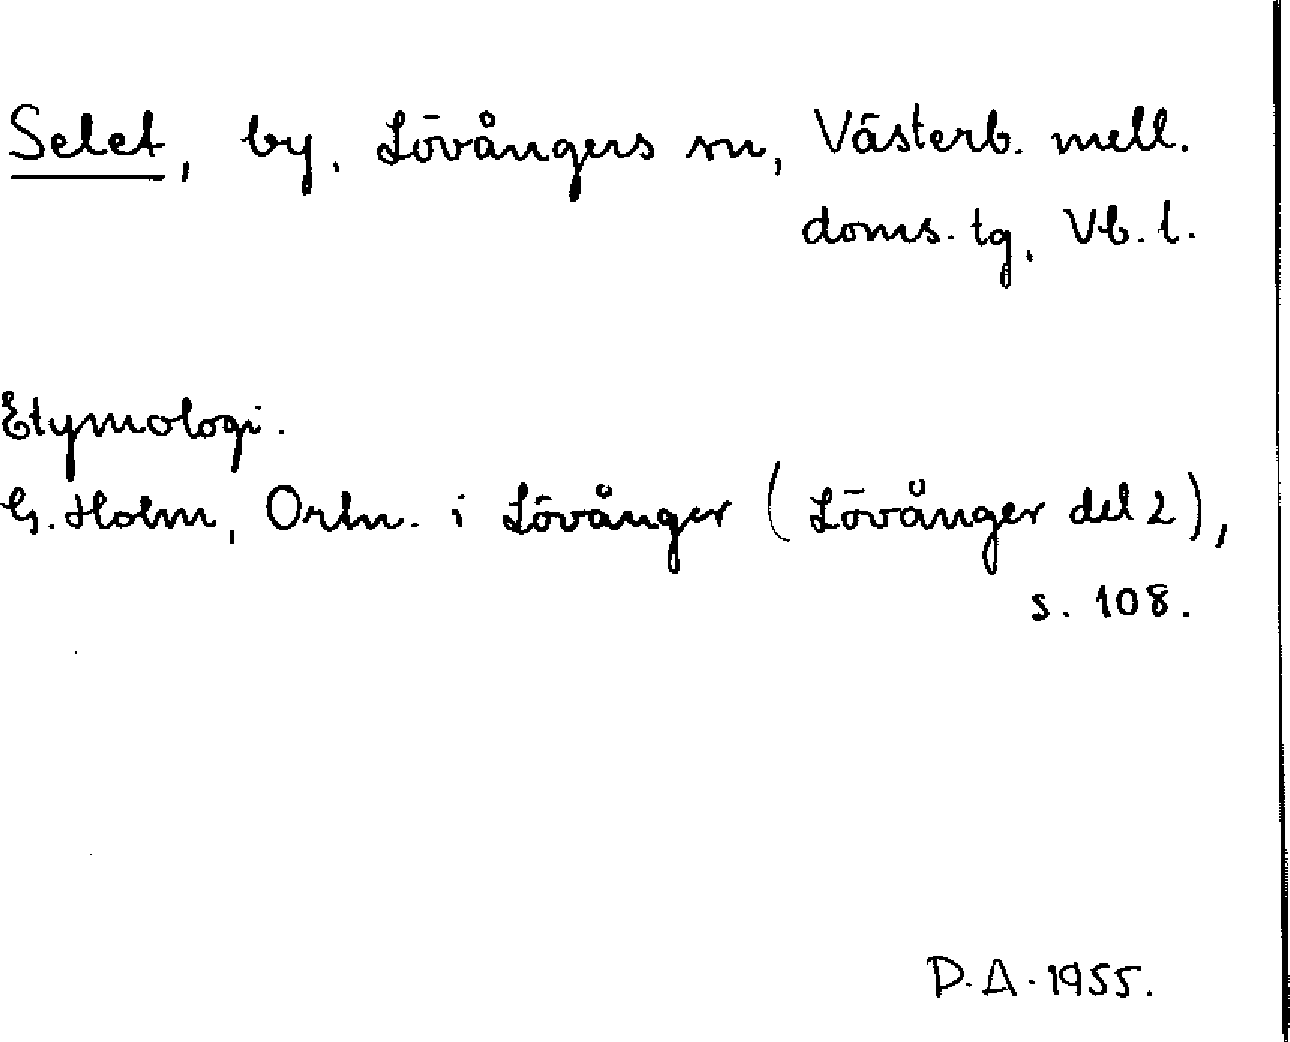 Selet, by, Lövångers sn, Västerb. mell.
doms. tg, Vb. l.
Etymologi.
G. Holm, Ortn. i Lövånger (Lövånger del 2),
s. 108.
D.A. 1955.